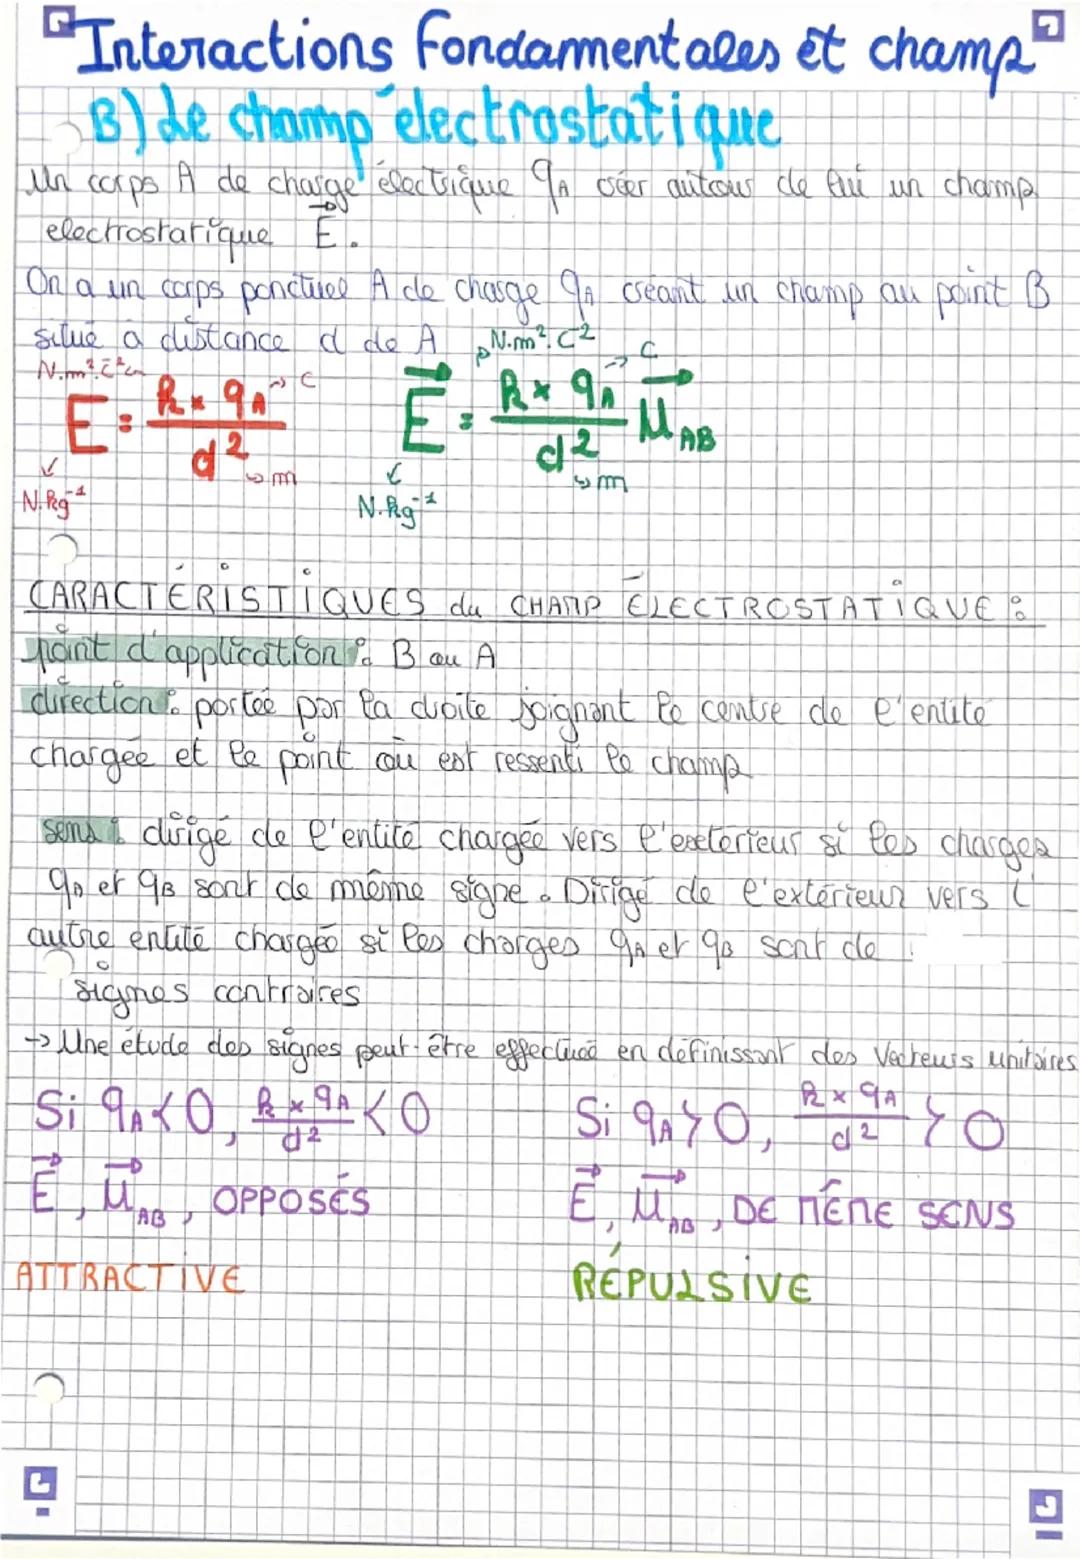 Interactions Fondammentales et champ
B) Le champ électrostatique
Un corps A de charge électrique qA créer autour de lui un champ
electrostatique E⃗.
On a un corps ponctuel A de charge qA créant un champ au point B
situé à distance d de A
N.m².C⁻² E = k × qA / d² → C → m ↙ N.kg⁻¹
N.m².C⁻² E⃗ = k × qA / d² u⃗AB → C → m ↙ N.kg⁻¹
CARACTÉRISTIQUES du CHAMP ÉLECTROSTATIQUE :
point d'application : B ou A
direction : portée par la droite joignant le centre de l'entité
chargée et le point où est ressenti le champ
sens : dirigé de l'entité chargée vers l'exeterieur si les charges
qA et qB sont de même signe. Dirigé de l'extérieur vers l'
autre entité chargée si les charges qA et qB sont de
signes contraires
→ Une étude des signes peut-être effectuée en définissant des Vecteurs unitaires
Si qA < 0, k × qA / d² < 0
Si qA > 0, k × qA / d² > 0
E⃗, u⃗AB, OPPOSÉS
E⃗, u⃗AB, DE MÊME SENS
ATTRACTIVE
RÉPULSIVE